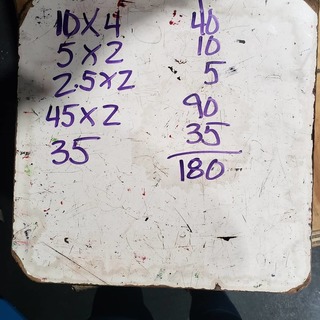 10x4 40
5x2 10
2.5x2 5
45x2 90
35 35
180